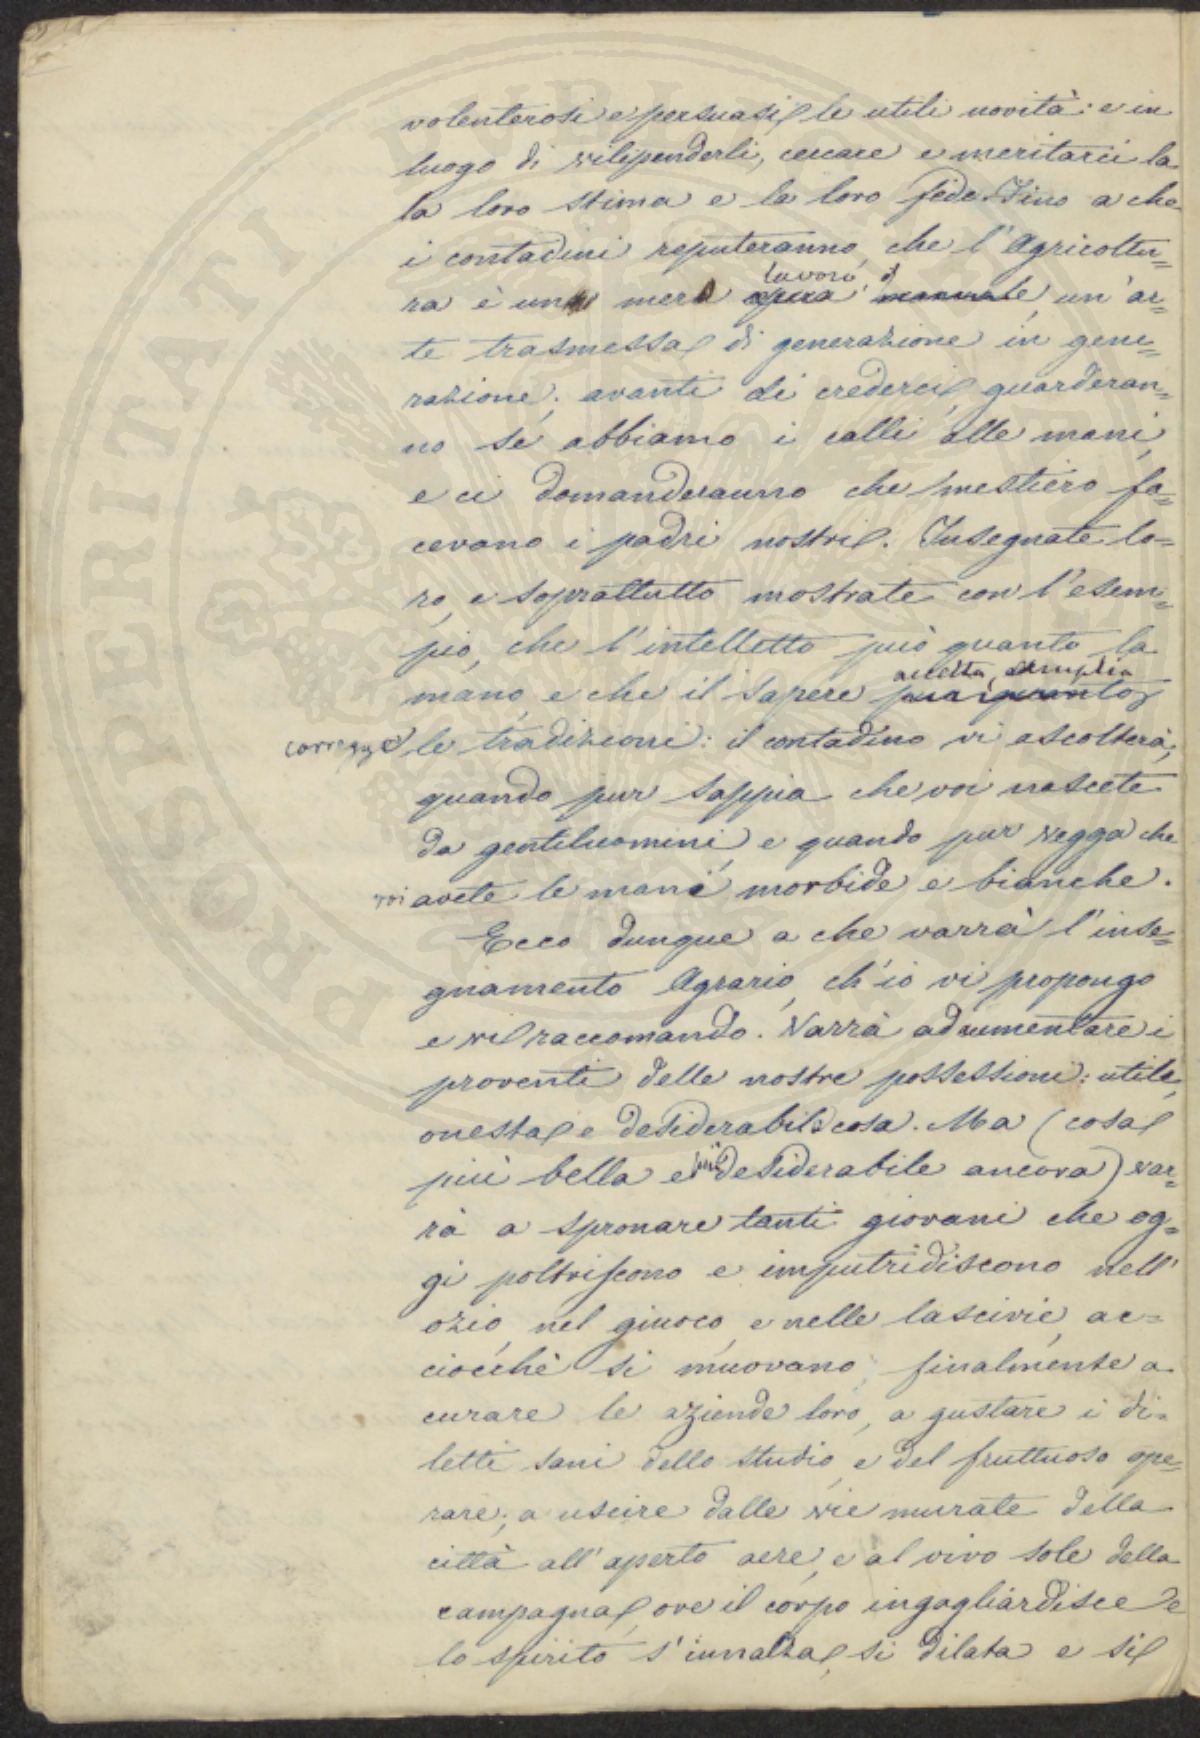 volenterosi e persuasi le utili novità: e in
luogo di vilipenderli, cercare e meritarci la
la loro stima e la loro fede. Fino a che
i contadini reputeranno, che l'Agricoltu=
ra è un mero lavoro, un'ar=
te trasmessa di generazione in gene=
razione; avanti di crederci, guarderan=
no se abbiamo i calli alle mani,
e ci domanderanno che mestiero fa=
cevano i padri nostri. Insegnate lo=
ro, e soprattutto mostrate con l'esem=
pio, che l'intelletto può quanto la
mano, e che il sapere accetta, amplia
corregge le tradizioni: il contadino vi ascolterà,
quando pur sappia che voi nascete
da gentiluomini, e quando pur vegga che
voi avete le mani morbide e bianche.
Ecco dunque a che varrà l'inse=
gnamento Agrario, ch'io vi propongo
e vi raccomando. Varrà ad aumentare i
proventi delle nostre possessioni: utile,
onesta e desiderabile cosa. Ma (cosa
più bella e più desiderabile ancora) var=
rà a spronare tanti giovani che og=
gi poltriscono e imputridiscono nell'
ozio, nel giuoco, e nelle lascivie, ac=
ciocchè si muovano finalmente a
curare le aziende loro, a gustare i di=
letti sani dello studio, e del fruttuoso ope=
rare; a uscire dalle vie murate della
città all'aperto aere, e al vivo sole della
campagna, ove il corpo ingagliardisce e
lo spirito s'innalza, si dilata e si
PROSPERITATI PUBLICAE